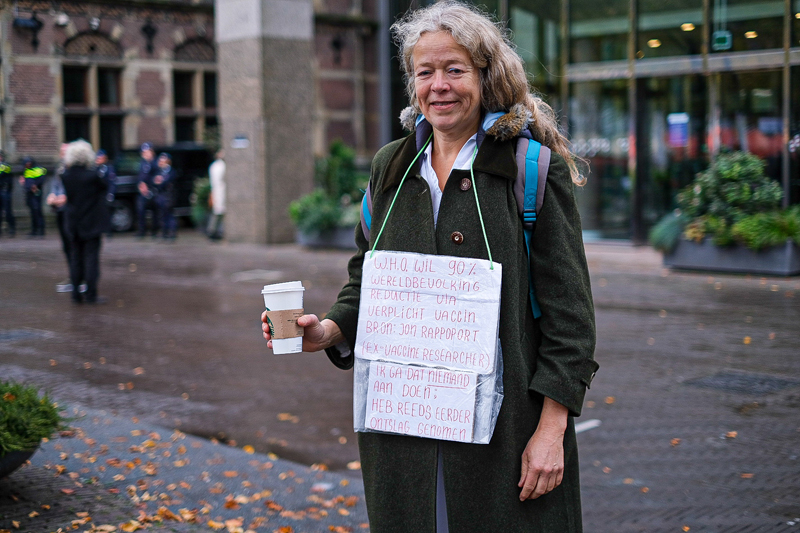 W.H.O. WIL 90%
WERELDBEVOLKING
REDUCTIE VIA
VERPLICHT VACCIN
BRON: JON RAPPOPORT
(EX-VACCINE RESEARCHER)
IK GA DAT NIEMAND
AAN DOEN:
HEB REEDS EERDER
ONTSLAG GENOMEN